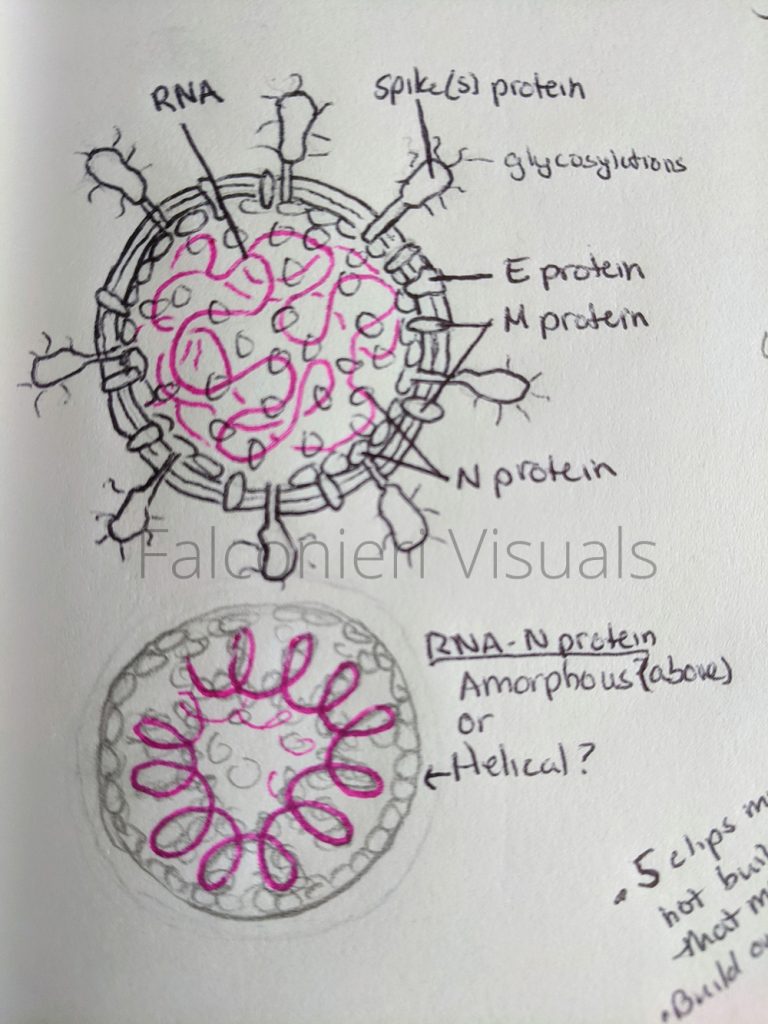 RNA
Spike(s) protein
glycosylations
E protein
M protein
N protein
Falconieri Visuals
RNA-N protein
Amorphous? (above)
or
←Helical?
•5 clips m
not buil
that m
•Build o